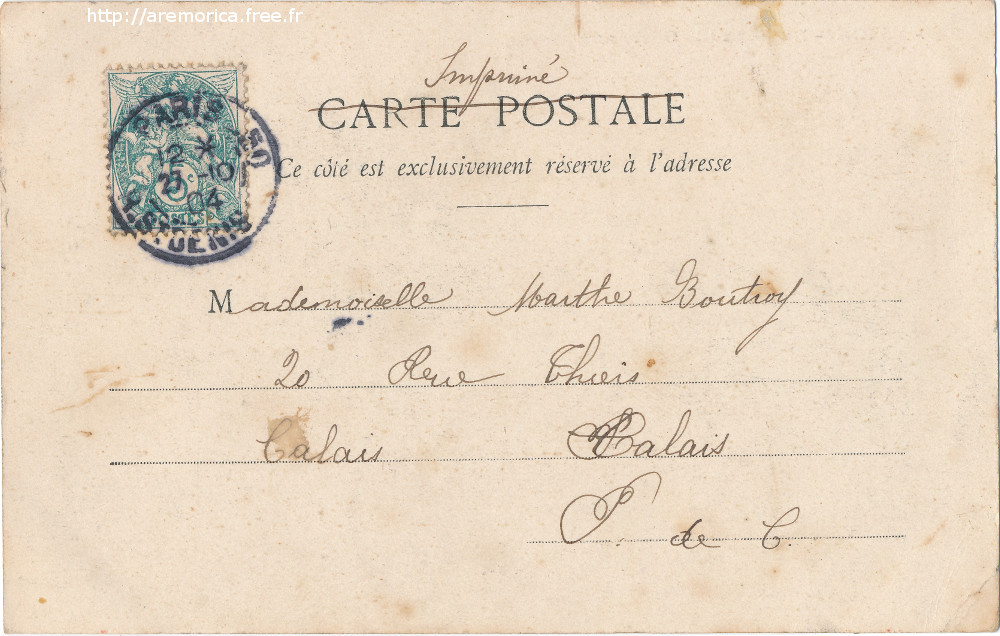 http://aremorica.free.fr
Imprimé
CARTE POSTALE
Ce côté est exclusivement réservé à l'adresse
PARIS
12 *
27 -10
04
ST DENIS
Mademoiselle Marthe Boutroy
20 Rue Thiers
Calais Calais
P. de C.